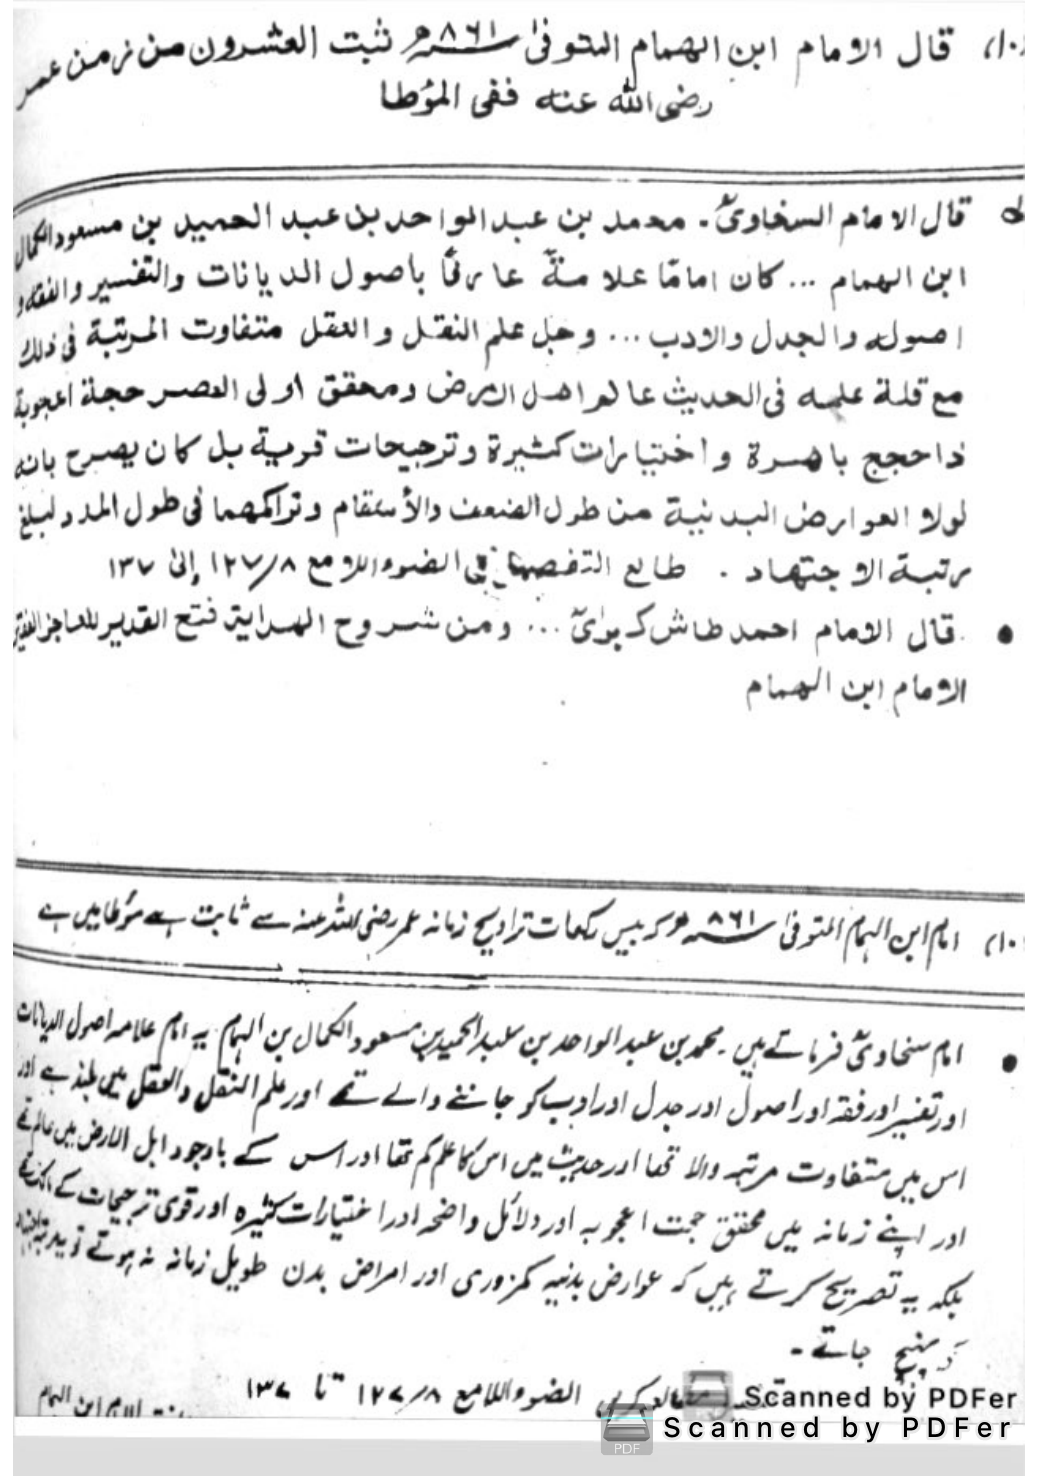 (١٠) قال الامام ابن الهمام المتوفیٰ ٨٦١ھ ثبت العشرون من زمن عمر
رضی الله عنه ففی المؤطا
قال الامام السخاویؒ ۔ محمد بن عبد الواحد بن عبد الحمید بن مسعود الکمال
ابن الهمام ... کان امامًا علامةً عارفًا باصول الدیانات والتفسیر والفقه و
اصوله والجدل والادب ... وجل علم النقل والعقل متفاوت المرتبة فی ذلك
مع قلة علمه فی الحدیث عالم اهل الارض ومحقق اولی العصر حجة اعجوبة
ذا حجج باهرة واختیارات کثیرة وترجیحات قویة بل کان یصرح بانه
لولا العوارض البدنیة من طول الضعف والأسقام وتراکمهما فی طول المدد لبلغ
رتبة الاجتهاد . طالع التفصیل فی الضوء اللامع ١٢٧/٨ إلیٰ ١٣٧
• قال الامام احمد طاش کبرایؒ ... ومن شروح الهدایة فتح القدیر للعاجز الفقیر
الامام ابن الهمام
(١٠) امام ابن الہمام المتوفیٰ ٨٦١ھ کہ بیس رکعات تراویح زمانہ عمر رضی اللہ عنہ سے ثابت ہے مؤطا میں ہے
• امام سخاویؒ فرماتے ہیں ۔ محمد بن عبد الواحد بن عبد الحمید بن مسعود الکمال بن الہمام یہ امام علامہ اصول الدیانات
اور تفسیر اور فقہ اور اصول اور جدل اور ادب کو جاننے والے تھے اور علم النقل والعقل میں بلند ہے اور
اس میں متفاوت مرتبہ والا تھا اور حدیث میں اس کا علم کم تھا اور اس کے باوجود اہل الارض میں عالم تھے
اور اپنے زمانہ میں محقق حجت اعجوبہ اور دلائل واضحہ اور اختیارات کثیرہ اور قوی ترجیحات کے مالک تھے
بلکہ یہ تصریح کرتے ہیں کہ عوارض بدنیہ کمزوری اور امراض بدن طویل زمانہ نہ ہوتے تو یہ رتبہ اجتہاد
کو پہنچ جاتے ۔
کریں الضوء اللامع ١٢٧/٨ تا ١٣٧
الامام ابن الہمام
Scanned by PDFer
Scanned by PDFer
PDF